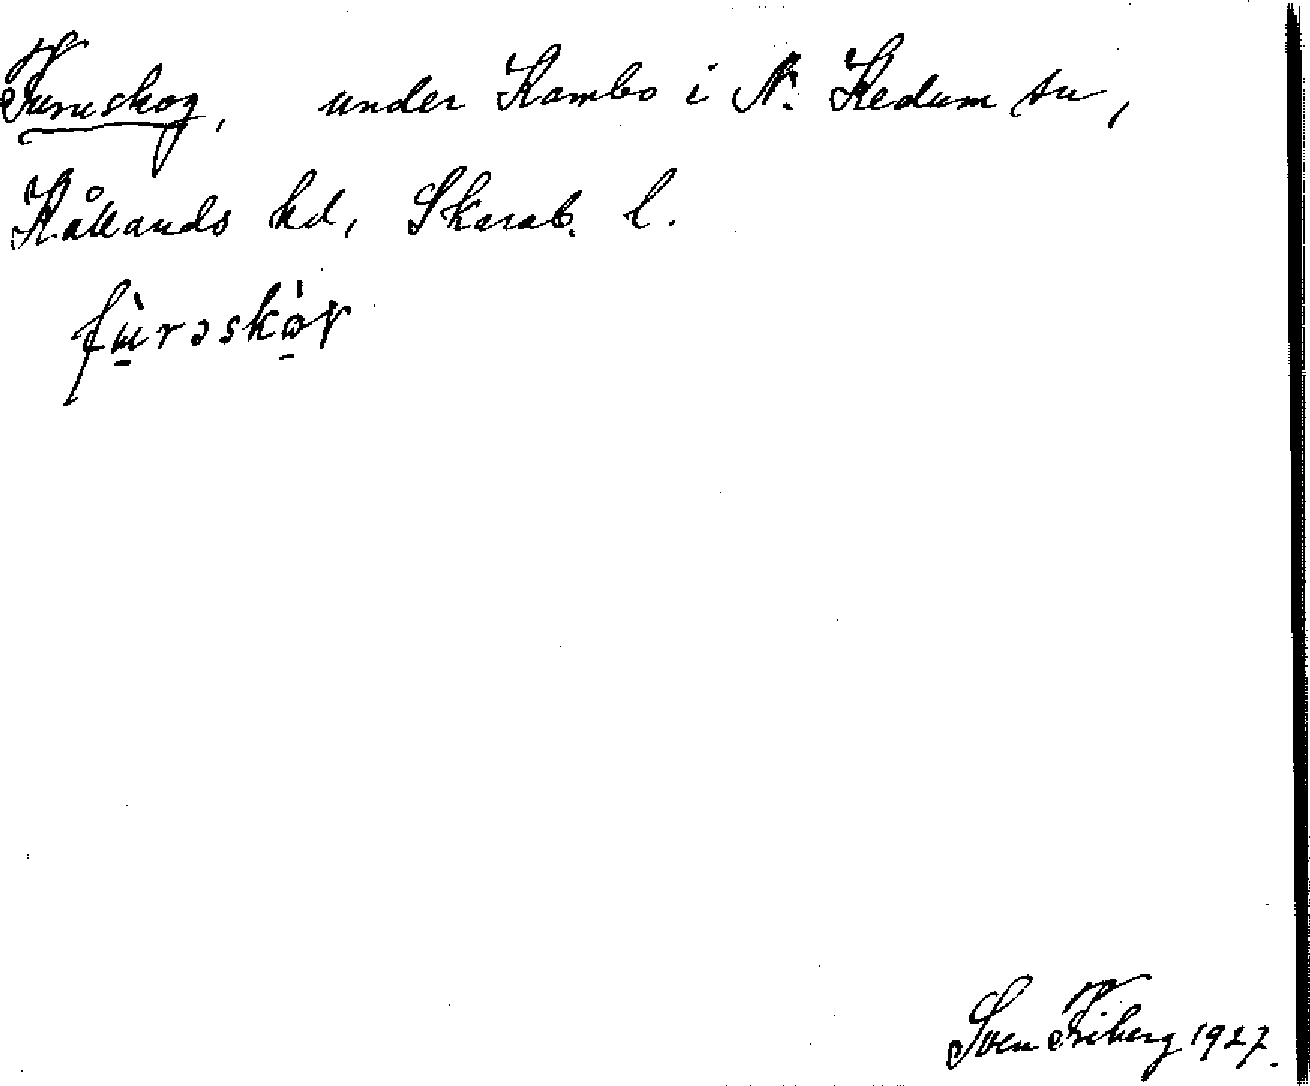 Furuskog, under Kambo i N. Kedum sn,
Kållands hd, Skarab. l.
fùrəskòɣ
Sven Friberg 1927.